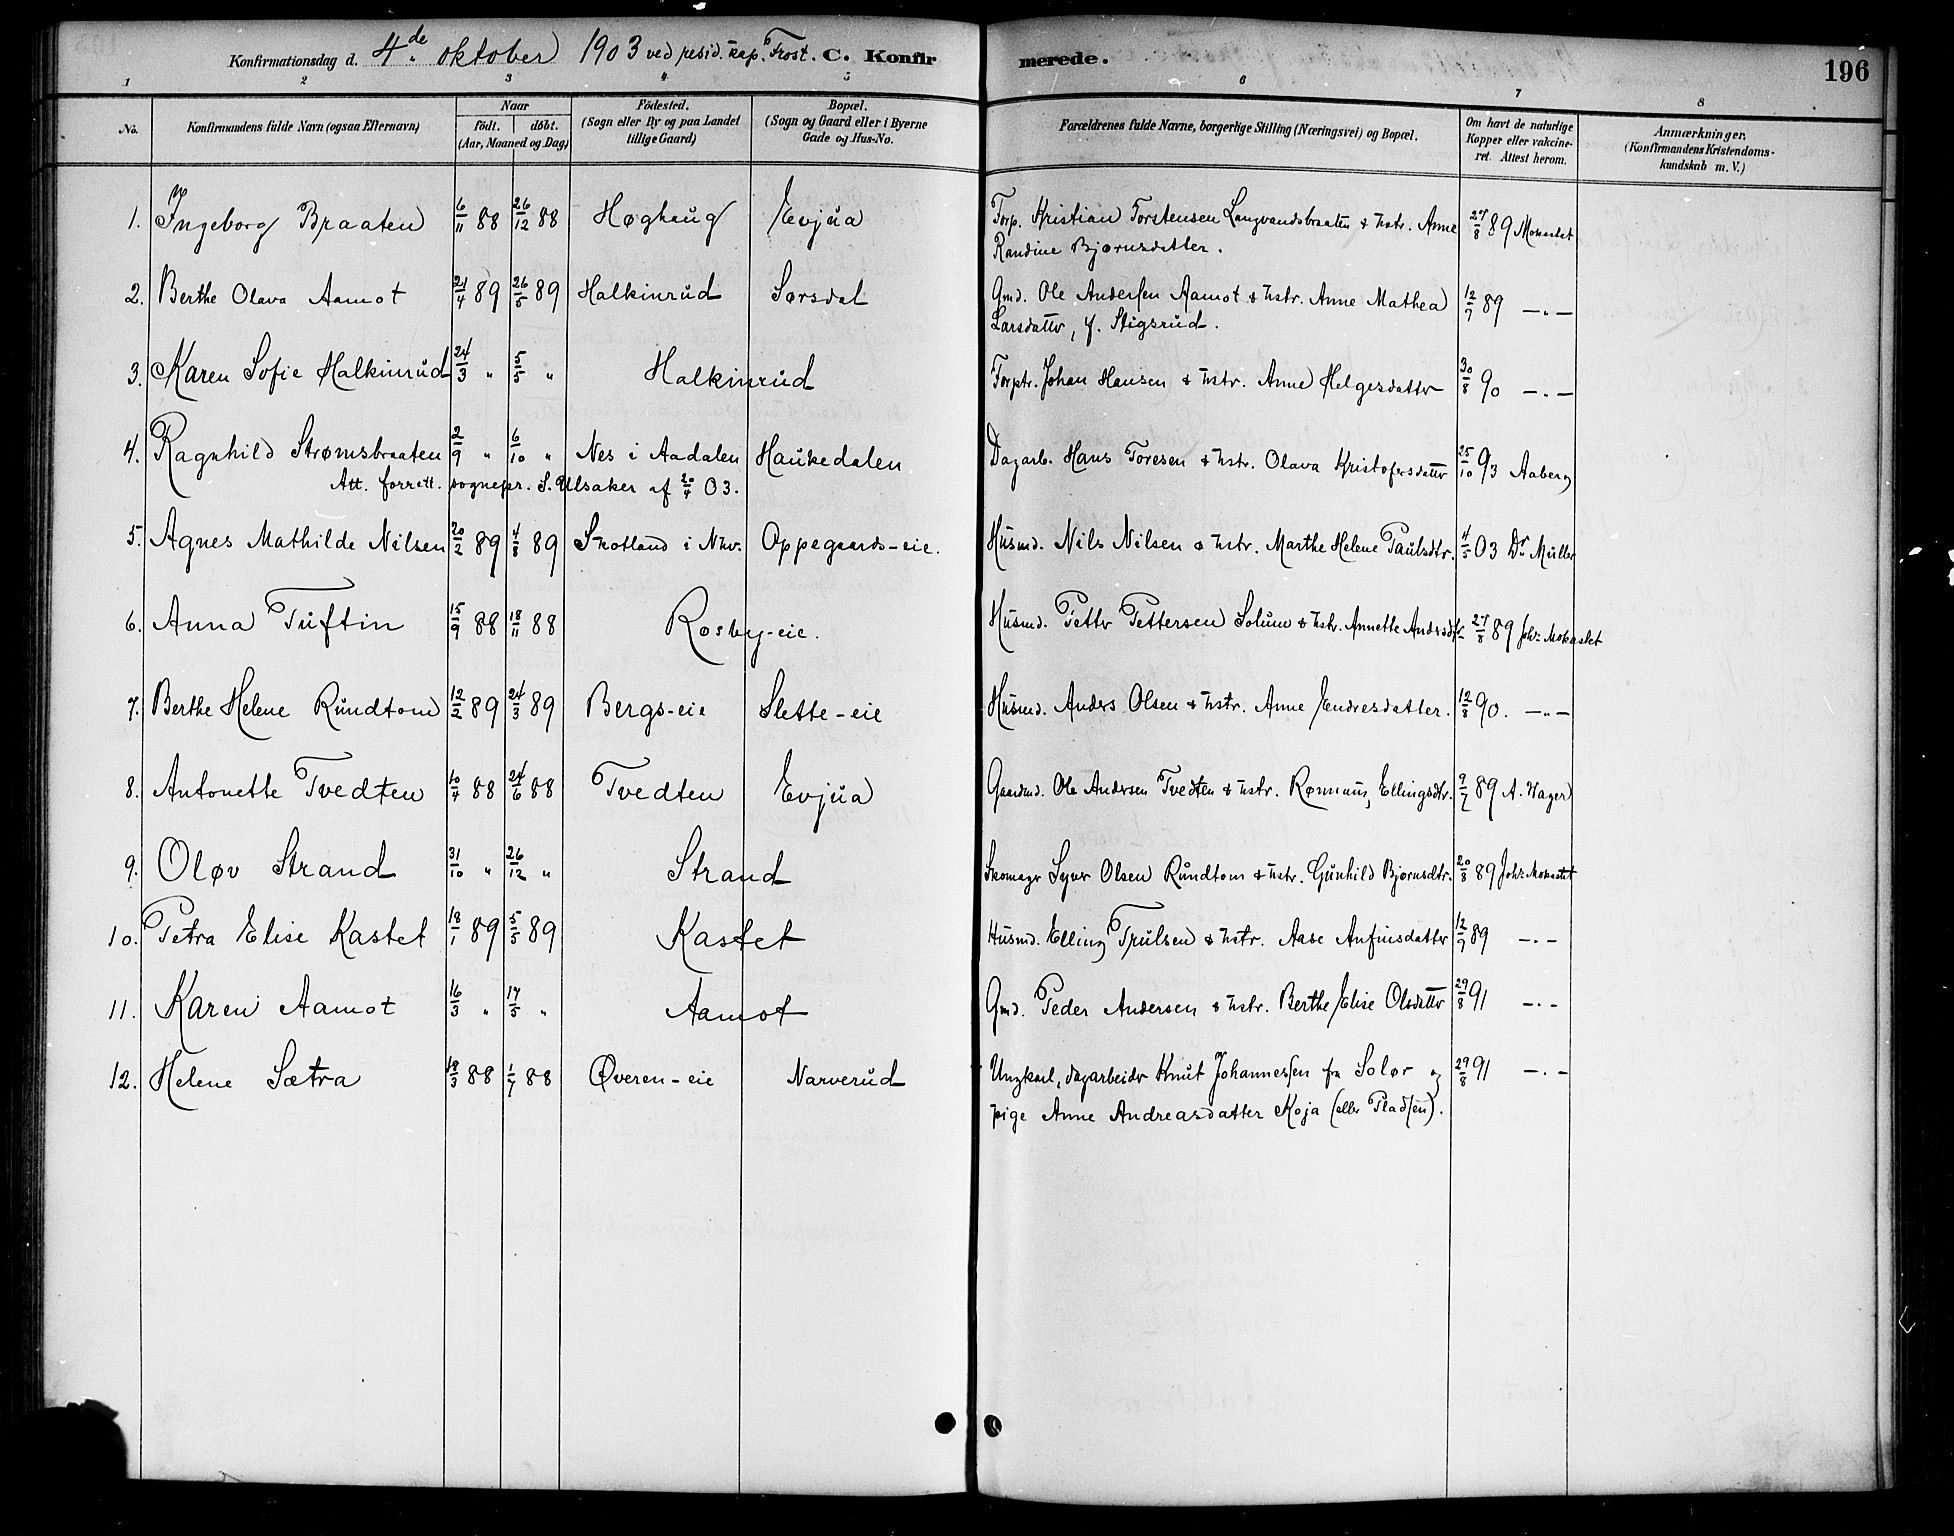 Konfirmationsdag d. 4de oktober 1903 ved resid. kap. Frost. C. Konfirmerede. 196
1 2 3 4 5 6 7 8
No. Konfirmandens fulde Navn (ogsaa Efternavn) Naar födt. döbt. (Aar, Maaned og Dag) Födested. (Sogn eller By og paa Landet tillige Gaard) Bopæl. (Sogn og Gaard eller i Byerne Gade og Hus-No. Forældrenes fulde Navne, borgerlige Stilling (Næringsvei) og Bopæl. Om havt de naturlige Kopper eller vakcineret. Attest herom. Anmærkninger. (Konfirmandens Kristendomskundskab m. V.)
1. Ingeborg Braaten 6/11 88 26/12 88 Høghaug Evjua Torp. Kristian Torstensen Langvandsbraaten & hstr. Anne 27/8 89 Mokastet
Randine Bjørnsdatter.
2. Berthe Olava Aamot 21/4 89 26/5 89 Halkinrud Sørsdal Gmd. Ole Andersen Aamot & hstr. Anne Mathea 12/7 89 —"—
Larsdatter, f. Stigsrud.
3. Karen Sofie Halkinrud 24/3 " 5/5 " Halkinrud Torptr. Johan Hansen & hstr. Anne Helgesdatter 30/8 90 —"—
4. Ragnhild Strømsbraaten 2/9 " 6/10 " Nes i Aadalen Haukedalen Dagarb. Hans Toresen & hstr. Olava Kristofersdatter 25/10 93 Aaberg
Att. forrett. sognepr. S. Ulsaker af 20/4 03.
5. Agnes Mathilde Nilsen 20/2 89 4/8 89 Skotland i Nhv. Oppegaards-eie. Husmd. Nils Nilsen & hstr. Marthe Helene Paulsdtr. 4/5 03 Dr Müller
6. Anna Tuftin 15/9 88 18/11 88 Røsby-eie. Husmd. Petter Pettersen Solum & hstr. Annette Andersdtr 27/8 89 Joh: Mokastet
7. Berthe Helene Rundtom 12/2 89 24/3 89 Bergs-eie Slette-eie Husmd. Anders Olsen & hstr. Anne Endresdatter. 12/8 90. —"—
8. Antonette Tvedten 10/4 88 24/6 88 Tvedten Evjua Gaardmd. Ole Andersen Tvedten & hstr. Rønnaug Ellingsdtr. 9/7 89 A. Hager
9. Oløv Strand 31/10 " 26/12 " Strand Skomager Syver Olsen Rundtom & hstr. Gunhild Bjørnsdtr. 20/8 89 Joh: Mokastet
10. Petra Elise Kastet 18/1 89 5/5 89 Kastet Husmd. Elling Trulsen & hstr. Aase Anfinsdatter 12/7 89 —"—
11. Karen Aamot 16/3 " 17/5 " Aamot Gmd. Peder Andersen & hstr. Berthe Elise Olsdatter 29/8 91 —"—
12. Helene Sætra 18/3 88 1/7 88 Øveren-eie Narverud Ungkarl, dagarbeider Knut Johannessen fra Solør og 29/8 91 —"—
pige Anne Andreasdatter Koja (eller Pladsen).